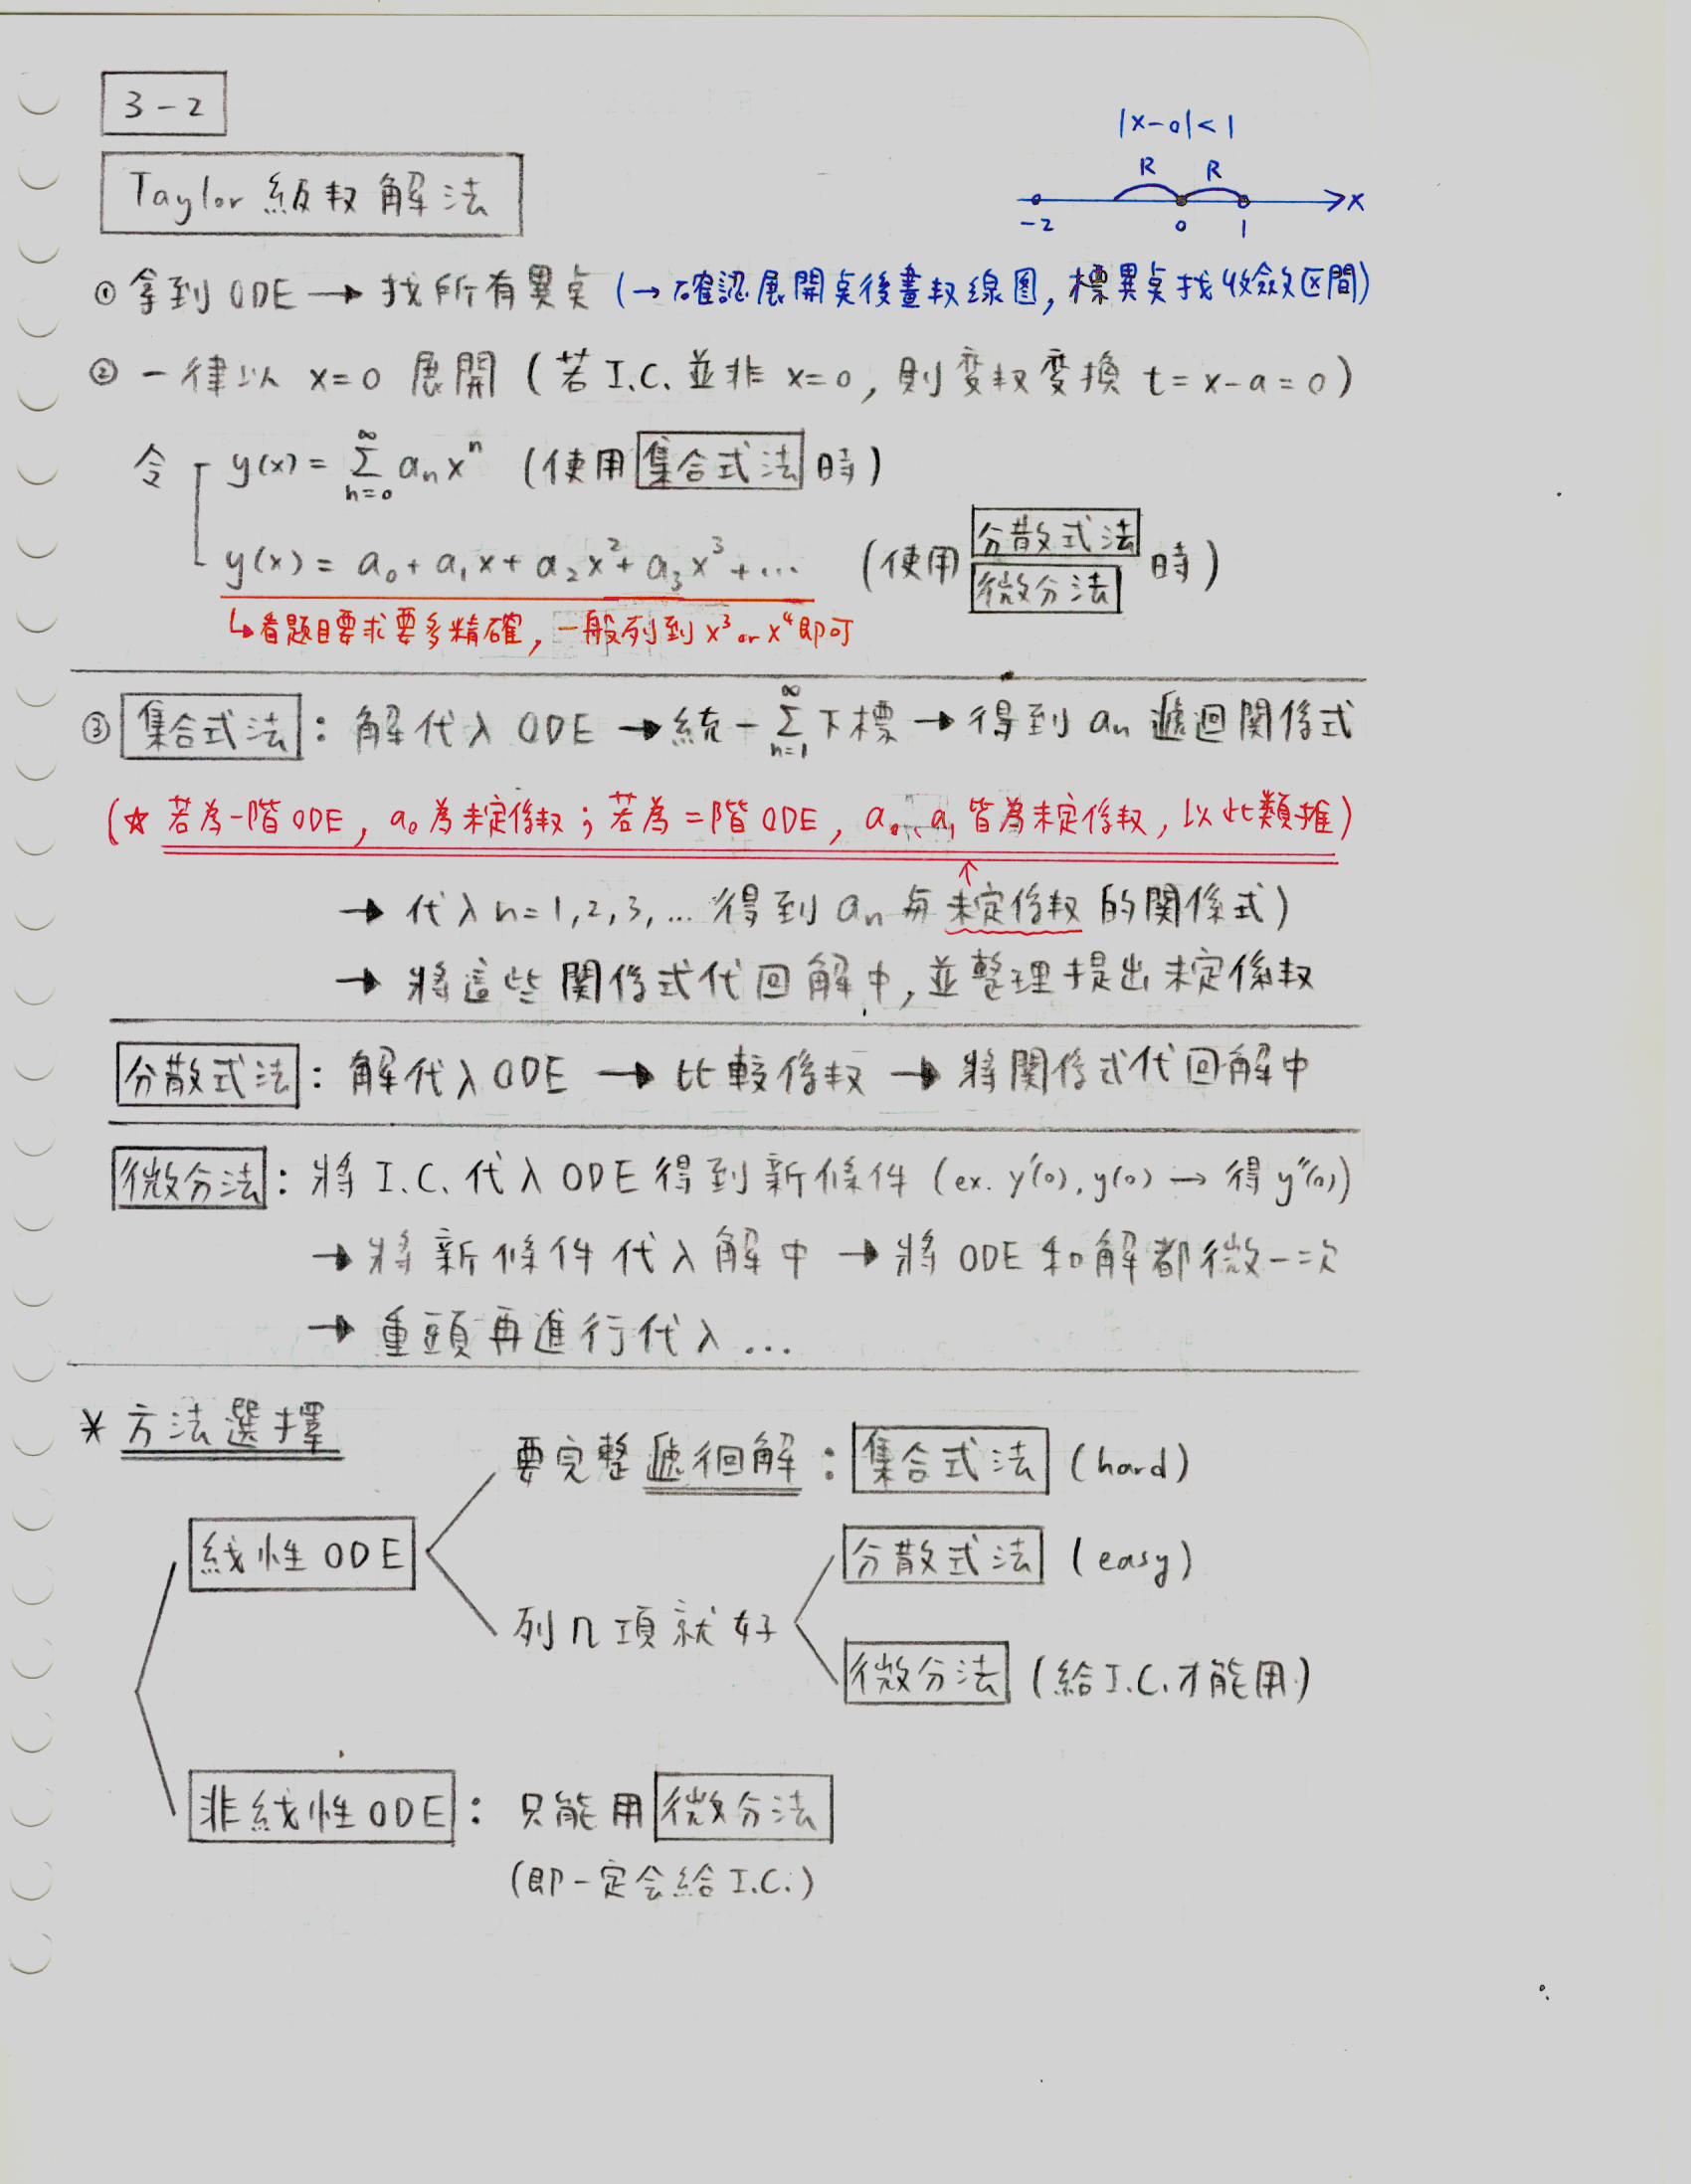 3-2
|x-0|<1
Taylor 級权解法
R R
x
-2 0 1
① 拿到 ODE → 找所有異奌 (→ 確認展開奌後畫权線图, 標異奌找收斂区間)
② 一律以 x=0 展開 (若 I.C. 並非 x=0, 則变权变換 t=x-a=0)
令 y(x) = ∑_{n=0}^{∞} a_n x^n (使用 集合式法 時)
y(x) = a_0 + a_1 x + a_2 x^2 + a_3 x^3 + ... (使用 分散式法 微分法 時)
↳ 看題目要求要多精確, 一般列到 x^3 or x^4 即可
③ 集合式法 : 解代入 ODE → 統一 ∑_{n=1}^{∞} 下標 → 得到 a_n 遞迴関係式
(☆ 若為一階 ODE, a_0 為未定係权 ; 若為二階 ODE, a_0、a_1 皆為未定係权, 以此類推)
↑
→ 代入 n=1,2,3,... 得到 a_n 与未定係权 的関係式)
→ 將這些関係式代回解中, 並整理提出未定係权
分散式法 : 解代入 ODE → 比較係权 → 將関係式代回解中
微分法 : 將 I.C. 代入 ODE 得到新條件 (ex. y'(0), y(0) → 得 y''(0))
→ 將新條件代入解中 → 將 ODE 和解都微一次
→ 重頭再進行代入 ...
* 方法選擇
要完整遞徊解 : 集合式法 (hard)
線性 ODE
分散式法 (easy)
列几項就好
微分法 (給 I.C. 才能用)
非線性 ODE : 只能用 微分法
(即一定会給 I.C.)